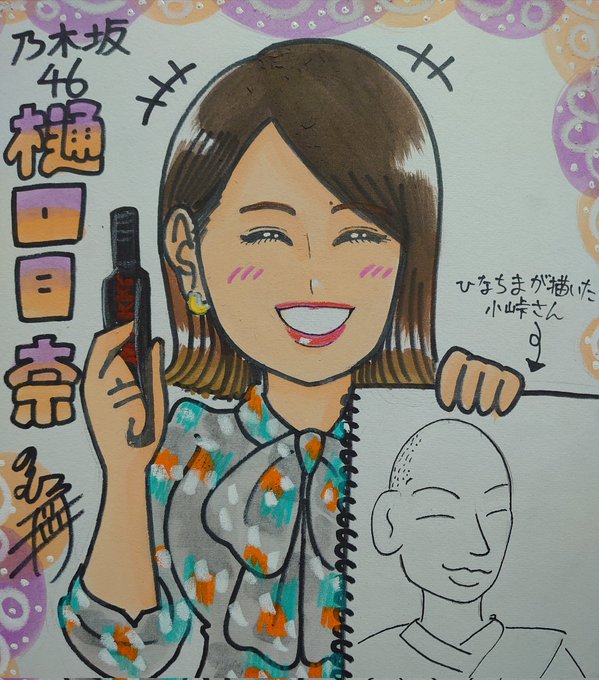 乃木坂
46
樋口日奈
ひなちまが描いた
小峠さん